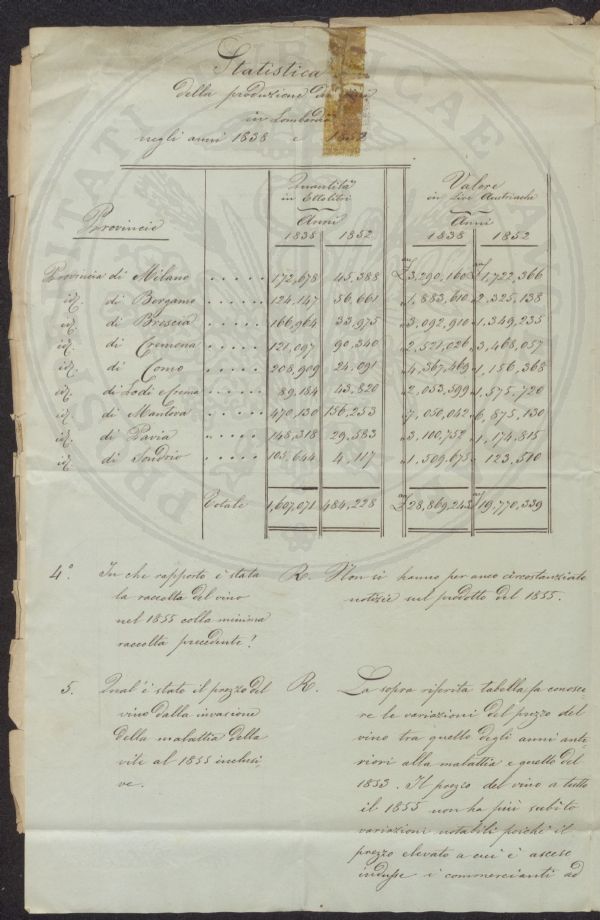 Statistica
della produzione del vino
in Lombardia
negli anni 1838 e 1852
Provincie
Quantità
in Ettolitri
Anni
1838 1852
Valore
in Lire Austriache
Anni
1838 1852
Provincia di Milano 172,678 45,388 3,290,160 1,722,366
id. di Bergamo 124,147 56,661 1,883,610 2,325,138
id. di Brescia 166,964 33,975 3,092,910 1,349,235
id. di Cremona 121,097 90,340 2,521,026 3,468,057
id. di Como 208,909 24,091 4,367,469 1,156,368
id. di Lodi e Crema 89,184 43,820 2,053,599 1,575,720
id. di Mantova 470,130 156,253 7,050,042 6,875,130
id. di Pavia 148,318 29,583 3,100,752 1,174,815
id. di Sondrio 105,644 4,117 1,509,675 123,510
Totale 1,607,071 484,228 28,869,243 19,770,339
4° In che rapporto è stata R. Non si hanno per anco circostanziate
la raccolta del vino notizie sul prodotto del 1855.
nel 1855 colla minima
raccolta precedente?
5. Qual'è stato il prezzo del R. La sopra riferita tabella fa conosce-
vino dalla invasione re le variazioni del prezzo del
della malattia della vino tra quello degli anni ante-
vite al 1855 inclusi, riori alla malattia e quello del
ve. 1853. Il prezzo del vino a tutto
il 1855 non ha più subito
variazioni notabili poichè il
prezzo elevato a cui è asceso
indusse i commercianti ad